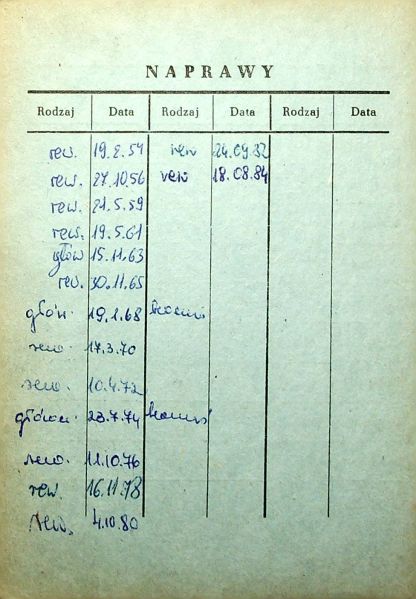 NAPRAWY
Rodzaj Data Rodzaj Data Rodzaj Data
rew. 19.2.54 rew 24.09.82
rew. 27.10.56 rew 18.08.84
rew. 21.5.59
rew. 19.5.61
głów 15.11.63
rew. 30.11.65
główn. 19.1.68
rew. 17.3.70
rew. 10.4.72
główn. 23.7.74
rew. 11.10.76
rew. 16.11.78
rew. 4.10.80